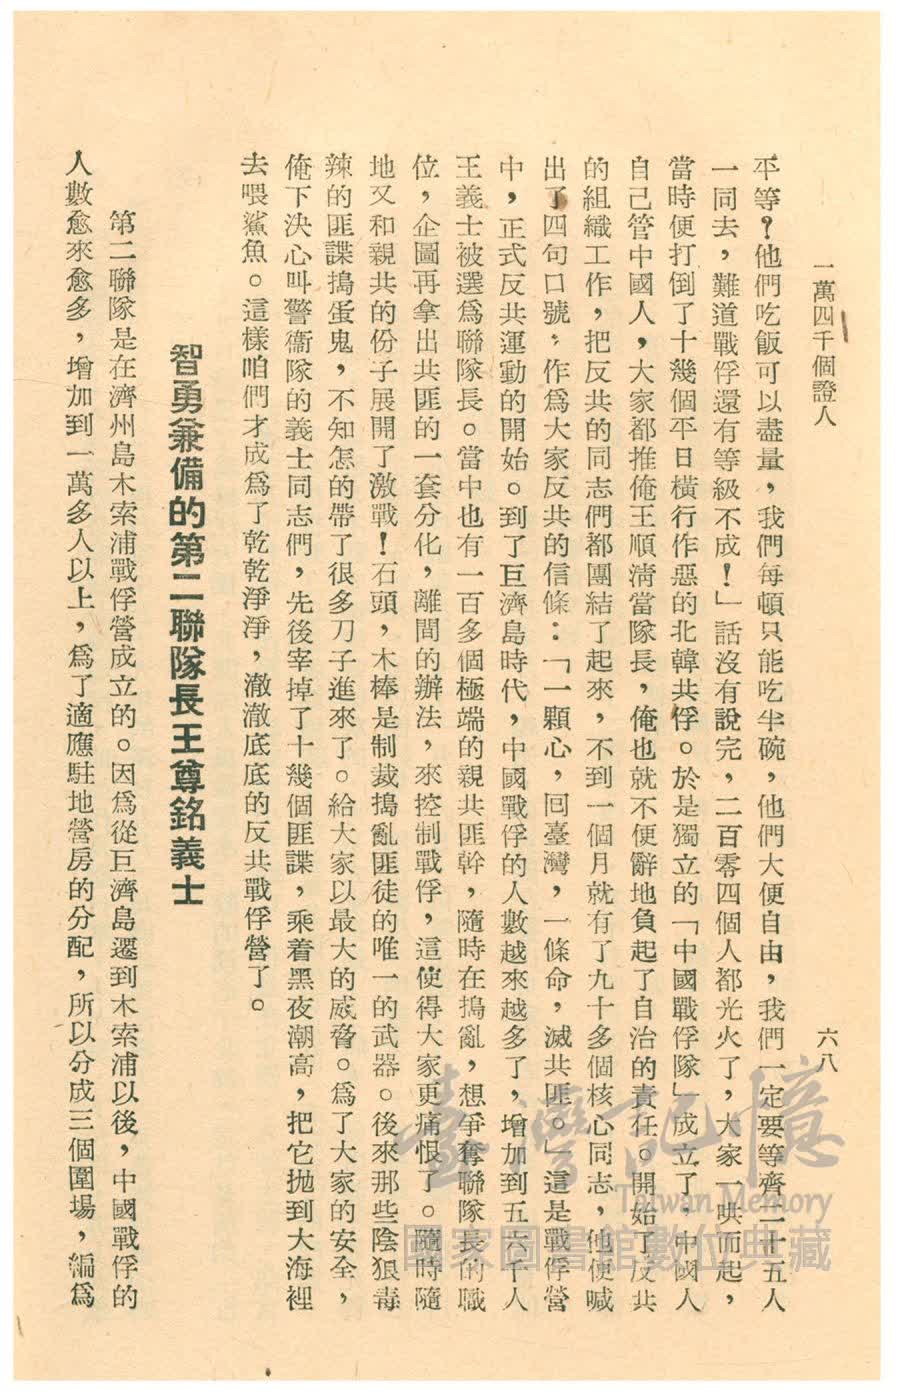 一萬四千個證人
六八
平等？他們吃飯可以盡量，我們每頓只能吃半碗，他們大便自由，我們一定要等齊二十五人
一同去，難道戰俘還有等級不成！」話沒有說完，二百零四個人都光火了，大家一哄而起，
當時便打倒了十幾個平日橫行作惡的北韓共俘。於是獨立的「中國戰俘隊」成立了，中國人
自己管中國人，大家都推俺王順淸當隊長，俺也就不便辭地負起了自治的責任。開始了反共
的組織工作，把反共的同志們都團結了起來，不到一個月就有了九十多個核心同志，他便喊
出了四句口號，作爲大家反共的信條：「一顆心，回臺灣，一條命，滅共匪。」這是戰俘營
中，正式反共運動的開始。到了巨濟島時代，中國戰俘的人數越來越多了，增加到五六千人
王義士被選爲聯隊長。當中也有一百多個極端的親共匪幹，隨時在搗亂，想爭奪聯隊長的職
位，企圖再拿出共匪的一套分化，離間的辦法，來控制戰俘，這使得大家更痛恨了。隨時隨
地又和親共的份子展開了激戰！石頭，木棒是制裁搗亂匪徒的唯一的武器。後來那些陰狠毒
辣的匪諜搗蛋鬼，不知怎的帶了很多刀子進來了。給大家以最大的威脅。爲了大家的安全，
俺下決心叫警衞隊的義士同志們，先後宰掉了十幾個匪諜，乘着黑夜潮高，把它拋到大海裡
去喂鯊魚。這樣咱們才成爲了乾乾淨淨，澈澈底底的反共戰俘營了。
智勇兼備的第二聯隊長王尊銘義士
第二聯隊是在濟州島木索浦戰俘營成立的。因爲從巨濟島遷到木索浦以後，中國戰俘的
人數愈來愈多，增加到一萬多人以上，爲了適應駐地營房的分配，所以分成三個圍場，編爲
臺灣記憶
Taiwan Memory
國家圖書館數位典藏